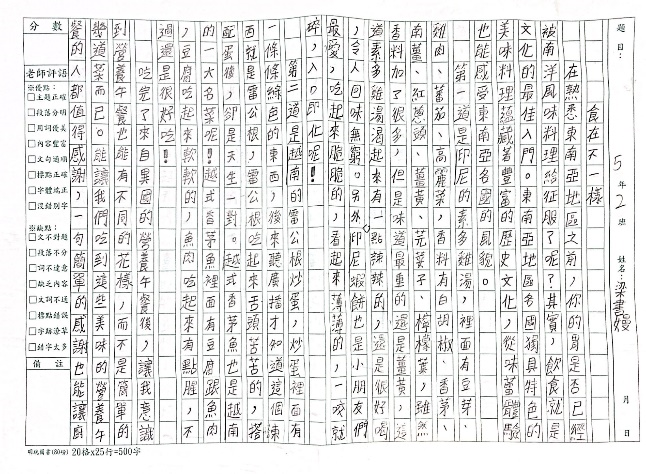 題目：
食在不一樣
5年2班
姓名：梁書嫚
月 日
在熟悉東南亞地區之前，你的胃是否已經
被南洋風味料理給征服了呢？其實，飲食就是
文化的最佳入門。東南亞各國獨具特色的
美味料理蘊藏著豐富的歷史文化，從味蕾體驗
也能感受東南亞各國的風貌。
第一道是印尼的素多雞湯，裡面有豆芽、
雞肉、番茄、高麗菜、香料有白胡椒、香茅、
南薑、紅蔥頭、薑黃、芫荽子、檸檬葉，雖然
香料加了很多，但是味道最重的還是薑黃，這
道素多雞湯喝起來有一點辣辣的，還是很好喝
，令人回味無窮。另外印尼蝦餅也是小朋友的
最愛，吃起來脆脆的，看起來薄薄的，一咬就
碎，入口即化呢！
第二道是越南的雷公根炒蛋，炒蛋裡面有
一條條綠色的東西，後來聽廣播才知道這個東
西就是雷公根，雷公根吃起來舌頭苦苦的，搭
配蛋後，卻是天生一對。越式香茅魚也是越南
的一大名菜呢！越式香茅魚裡面有豆腐跟魚肉
，豆腐吃起來軟軟的，魚肉吃起來有點腥，不
過還是很好吃！
吃完了來自異國的營養午餐後，讓我意識
到營養午餐也能有不同的花樣，而不是簡單的
幾道菜而已。能讓我們吃到這些美味的營養午
餐的人都值得感謝，一句簡單的感謝也能讓廚
分數
老師評語
※優點：
□主題正確
□段落分明
□用詞優美
□內容豐富
□文句通順
□標點正確
□字體端正
□沒錯別字
※缺點：
□文不對題
□段落不分
□詞不達意
□缺乏內容
□文詞不通
□標點錯誤
□字跡潦草
□錯字太多
備註
20格x25行=500字